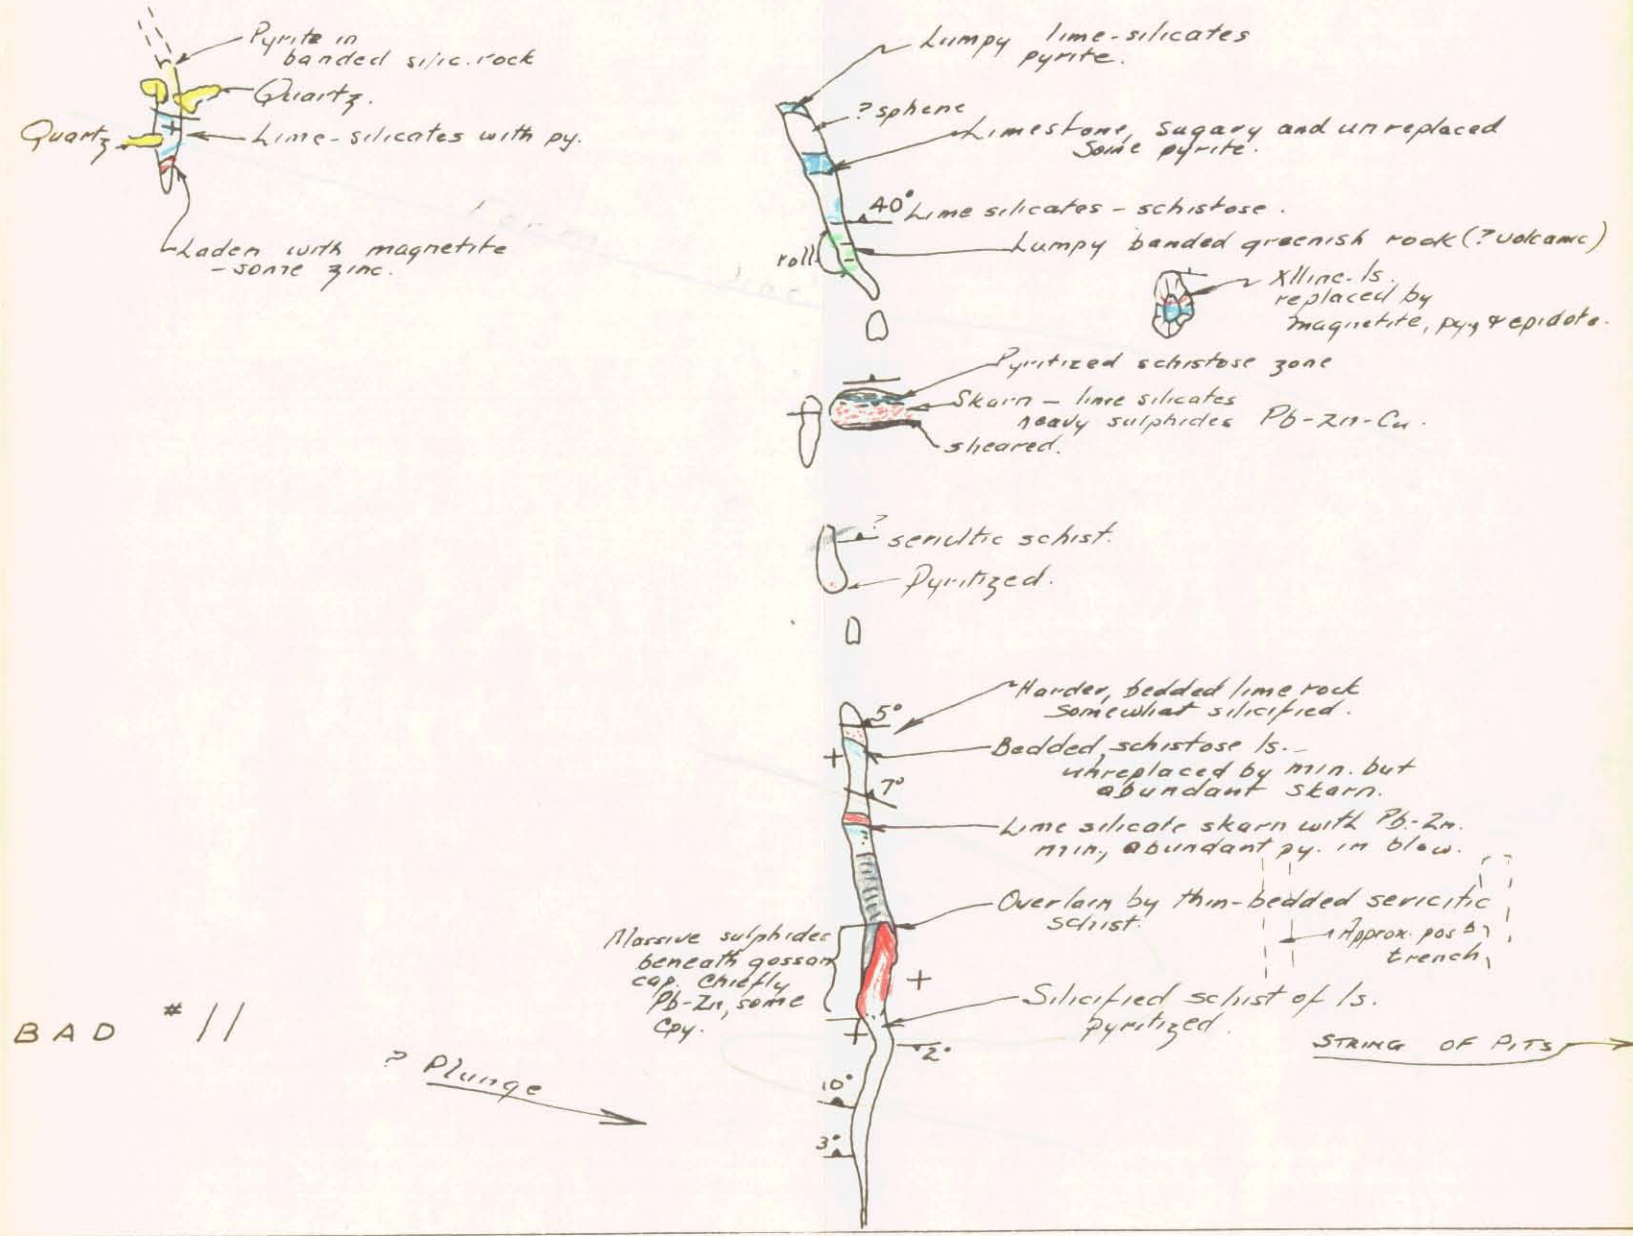 Pyrite in
banded silic. rock
Quartz.
Quartz
Lime-silicates with py.
Laden with magnetite
- some zinc.
Lumpy lime-silicates
pyrite.
? sphene
Limestone, sugary and unreplaced
Some pyrite.
40° Lime silicates - schistose.
roll
Lumpy banded greenish rock (? volcanic)
Xlline ls.
replaced by
magnetite, py, & epidote.
Pyritized schistose zone
Skarn - lime silicates
heavy sulphides Pb-Zn-Cu.
sheared.
?
sericitic schist.
Pyritized.
Harder, bedded lime rock
Somewhat silicified.
5°
Bedded, schistose ls. -
unreplaced by min. but
abundant skarn.
7°
Lime silicate skarn with Pb-Zn.
min., abundant py. in blow.
Overlain by thin-bedded sericitic
schist.
Approx. pos'n
trench
Massive sulphides
beneath gossan
cap. Chiefly
Pb-Zn, some
Cpy.
Silicified schist of ls.
pyritized.
BAD #11
2°
STRING OF PITS
? Plunge
10°
3°